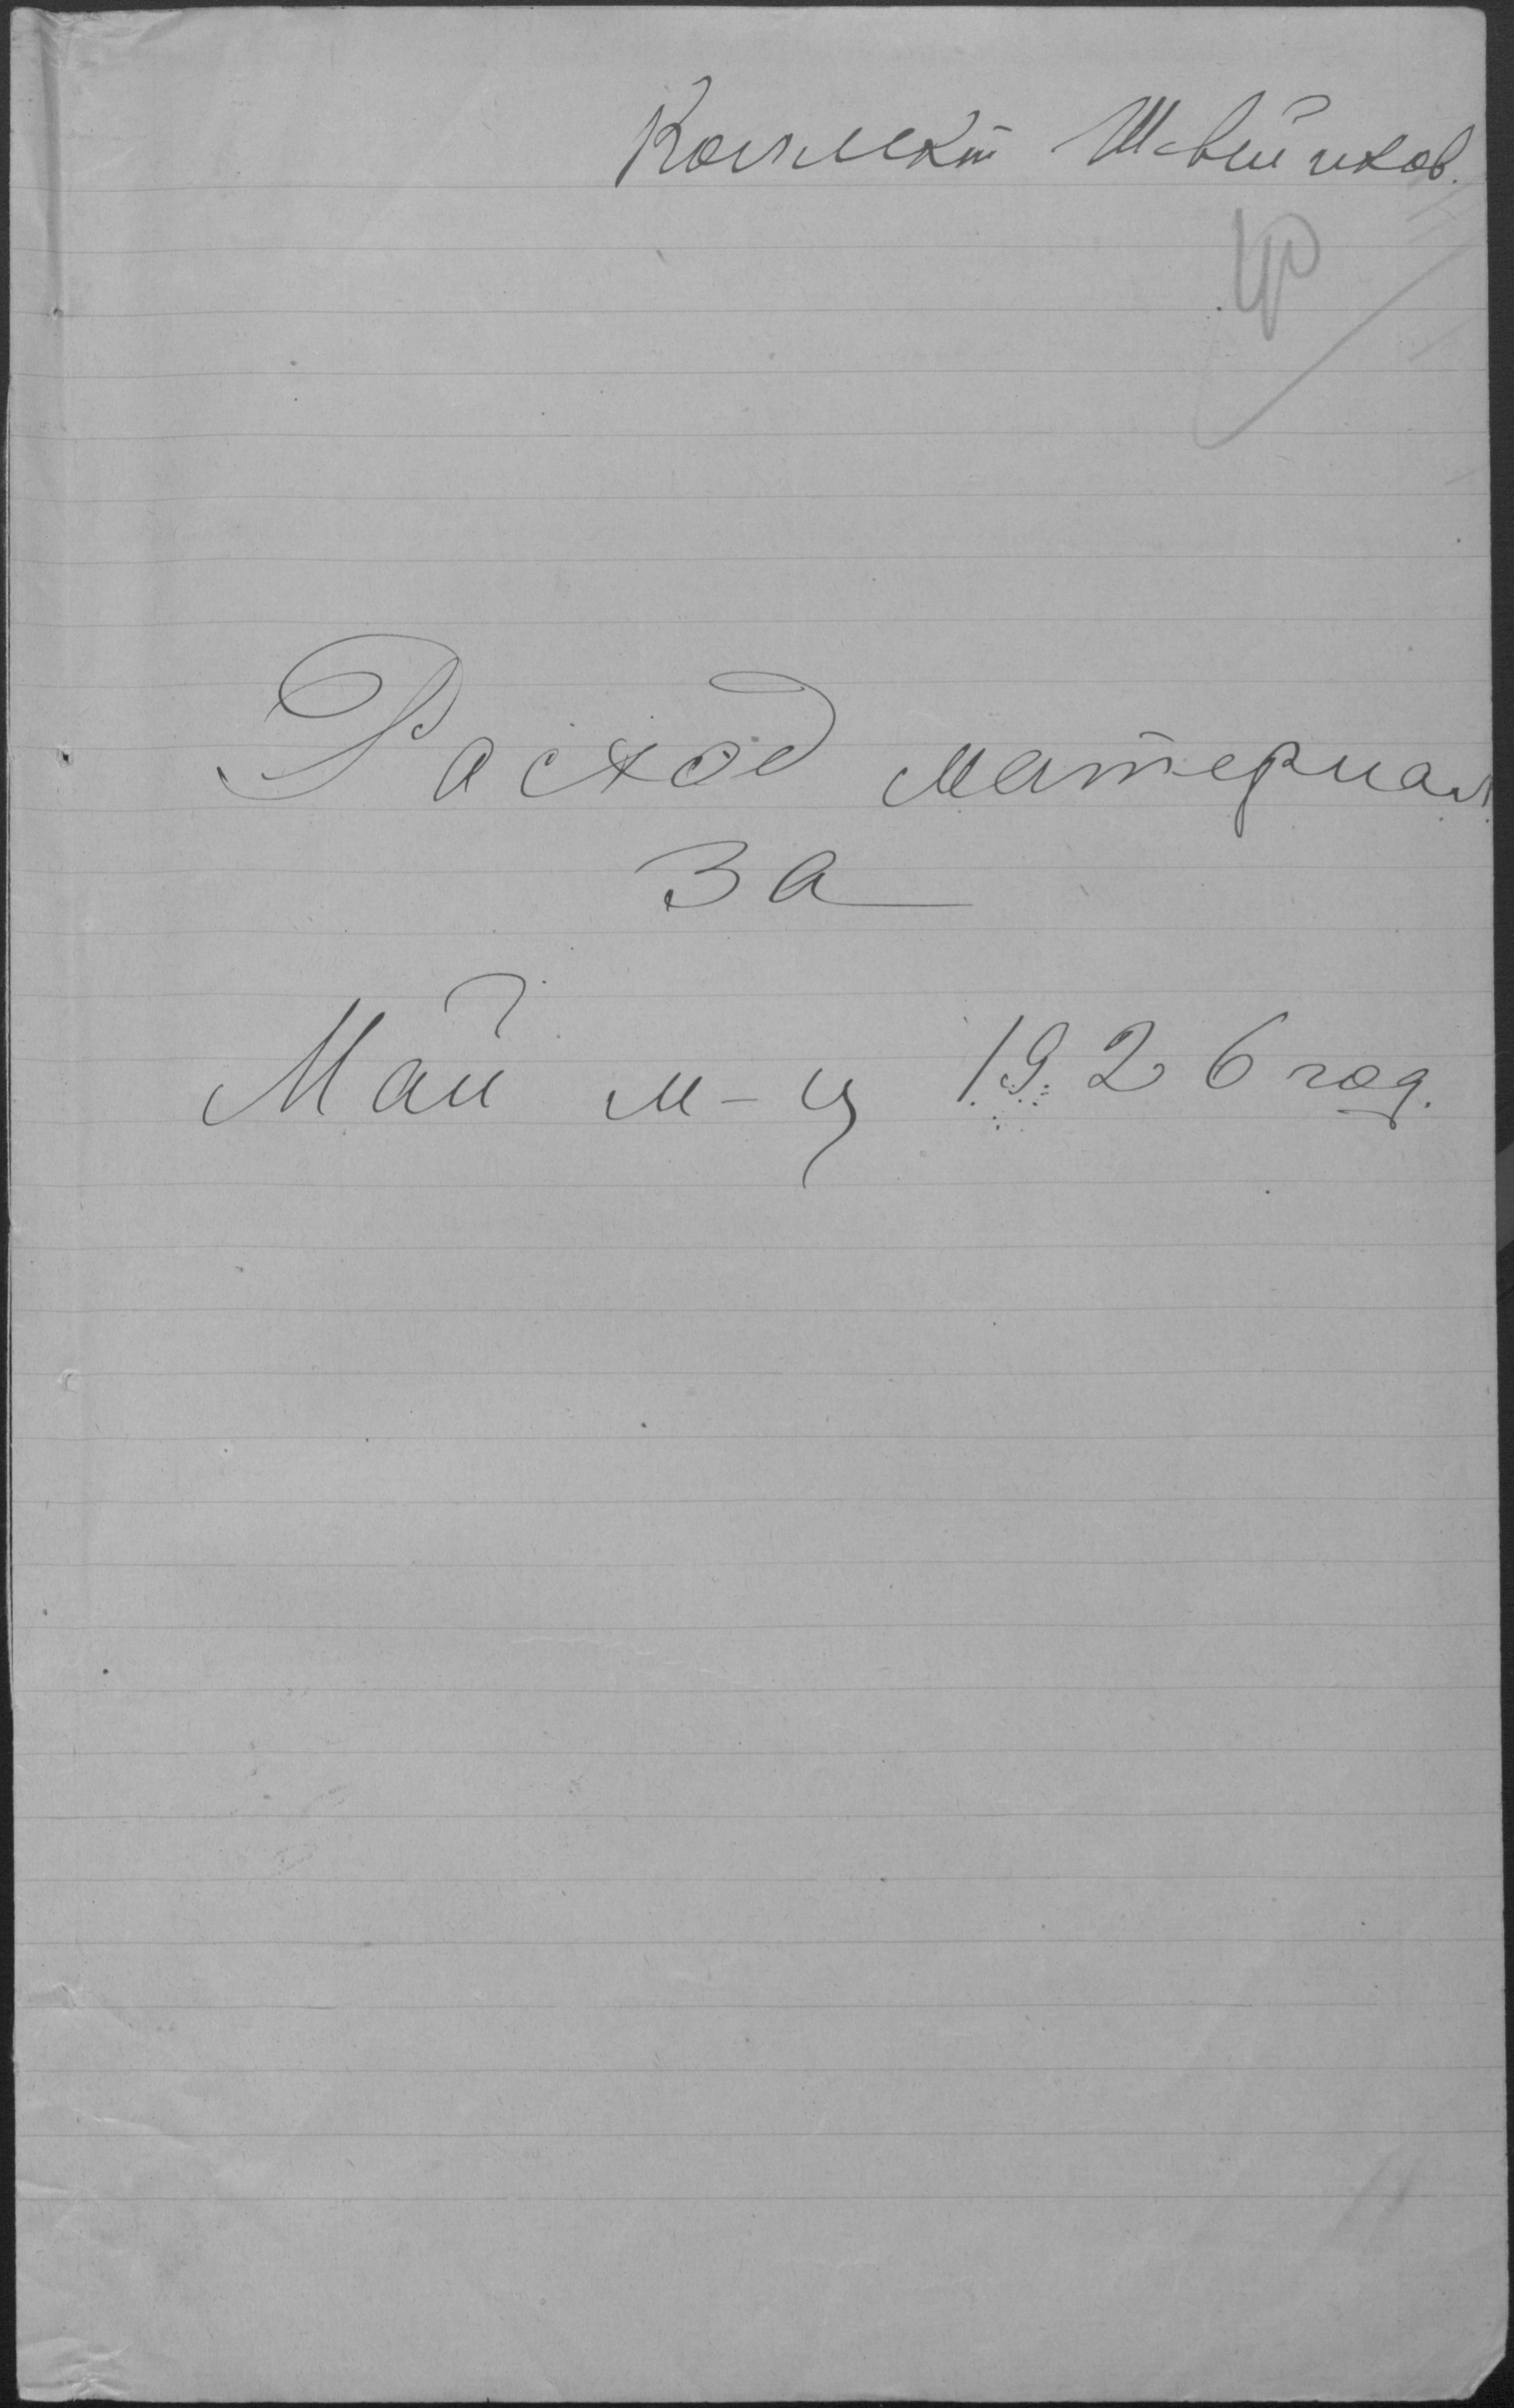 Коллект Швейников.
Расход материал.
За
Май м-ц 1926 год.